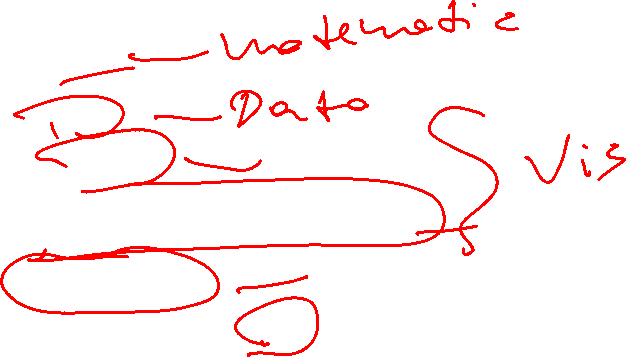 matematic
Data
Vis